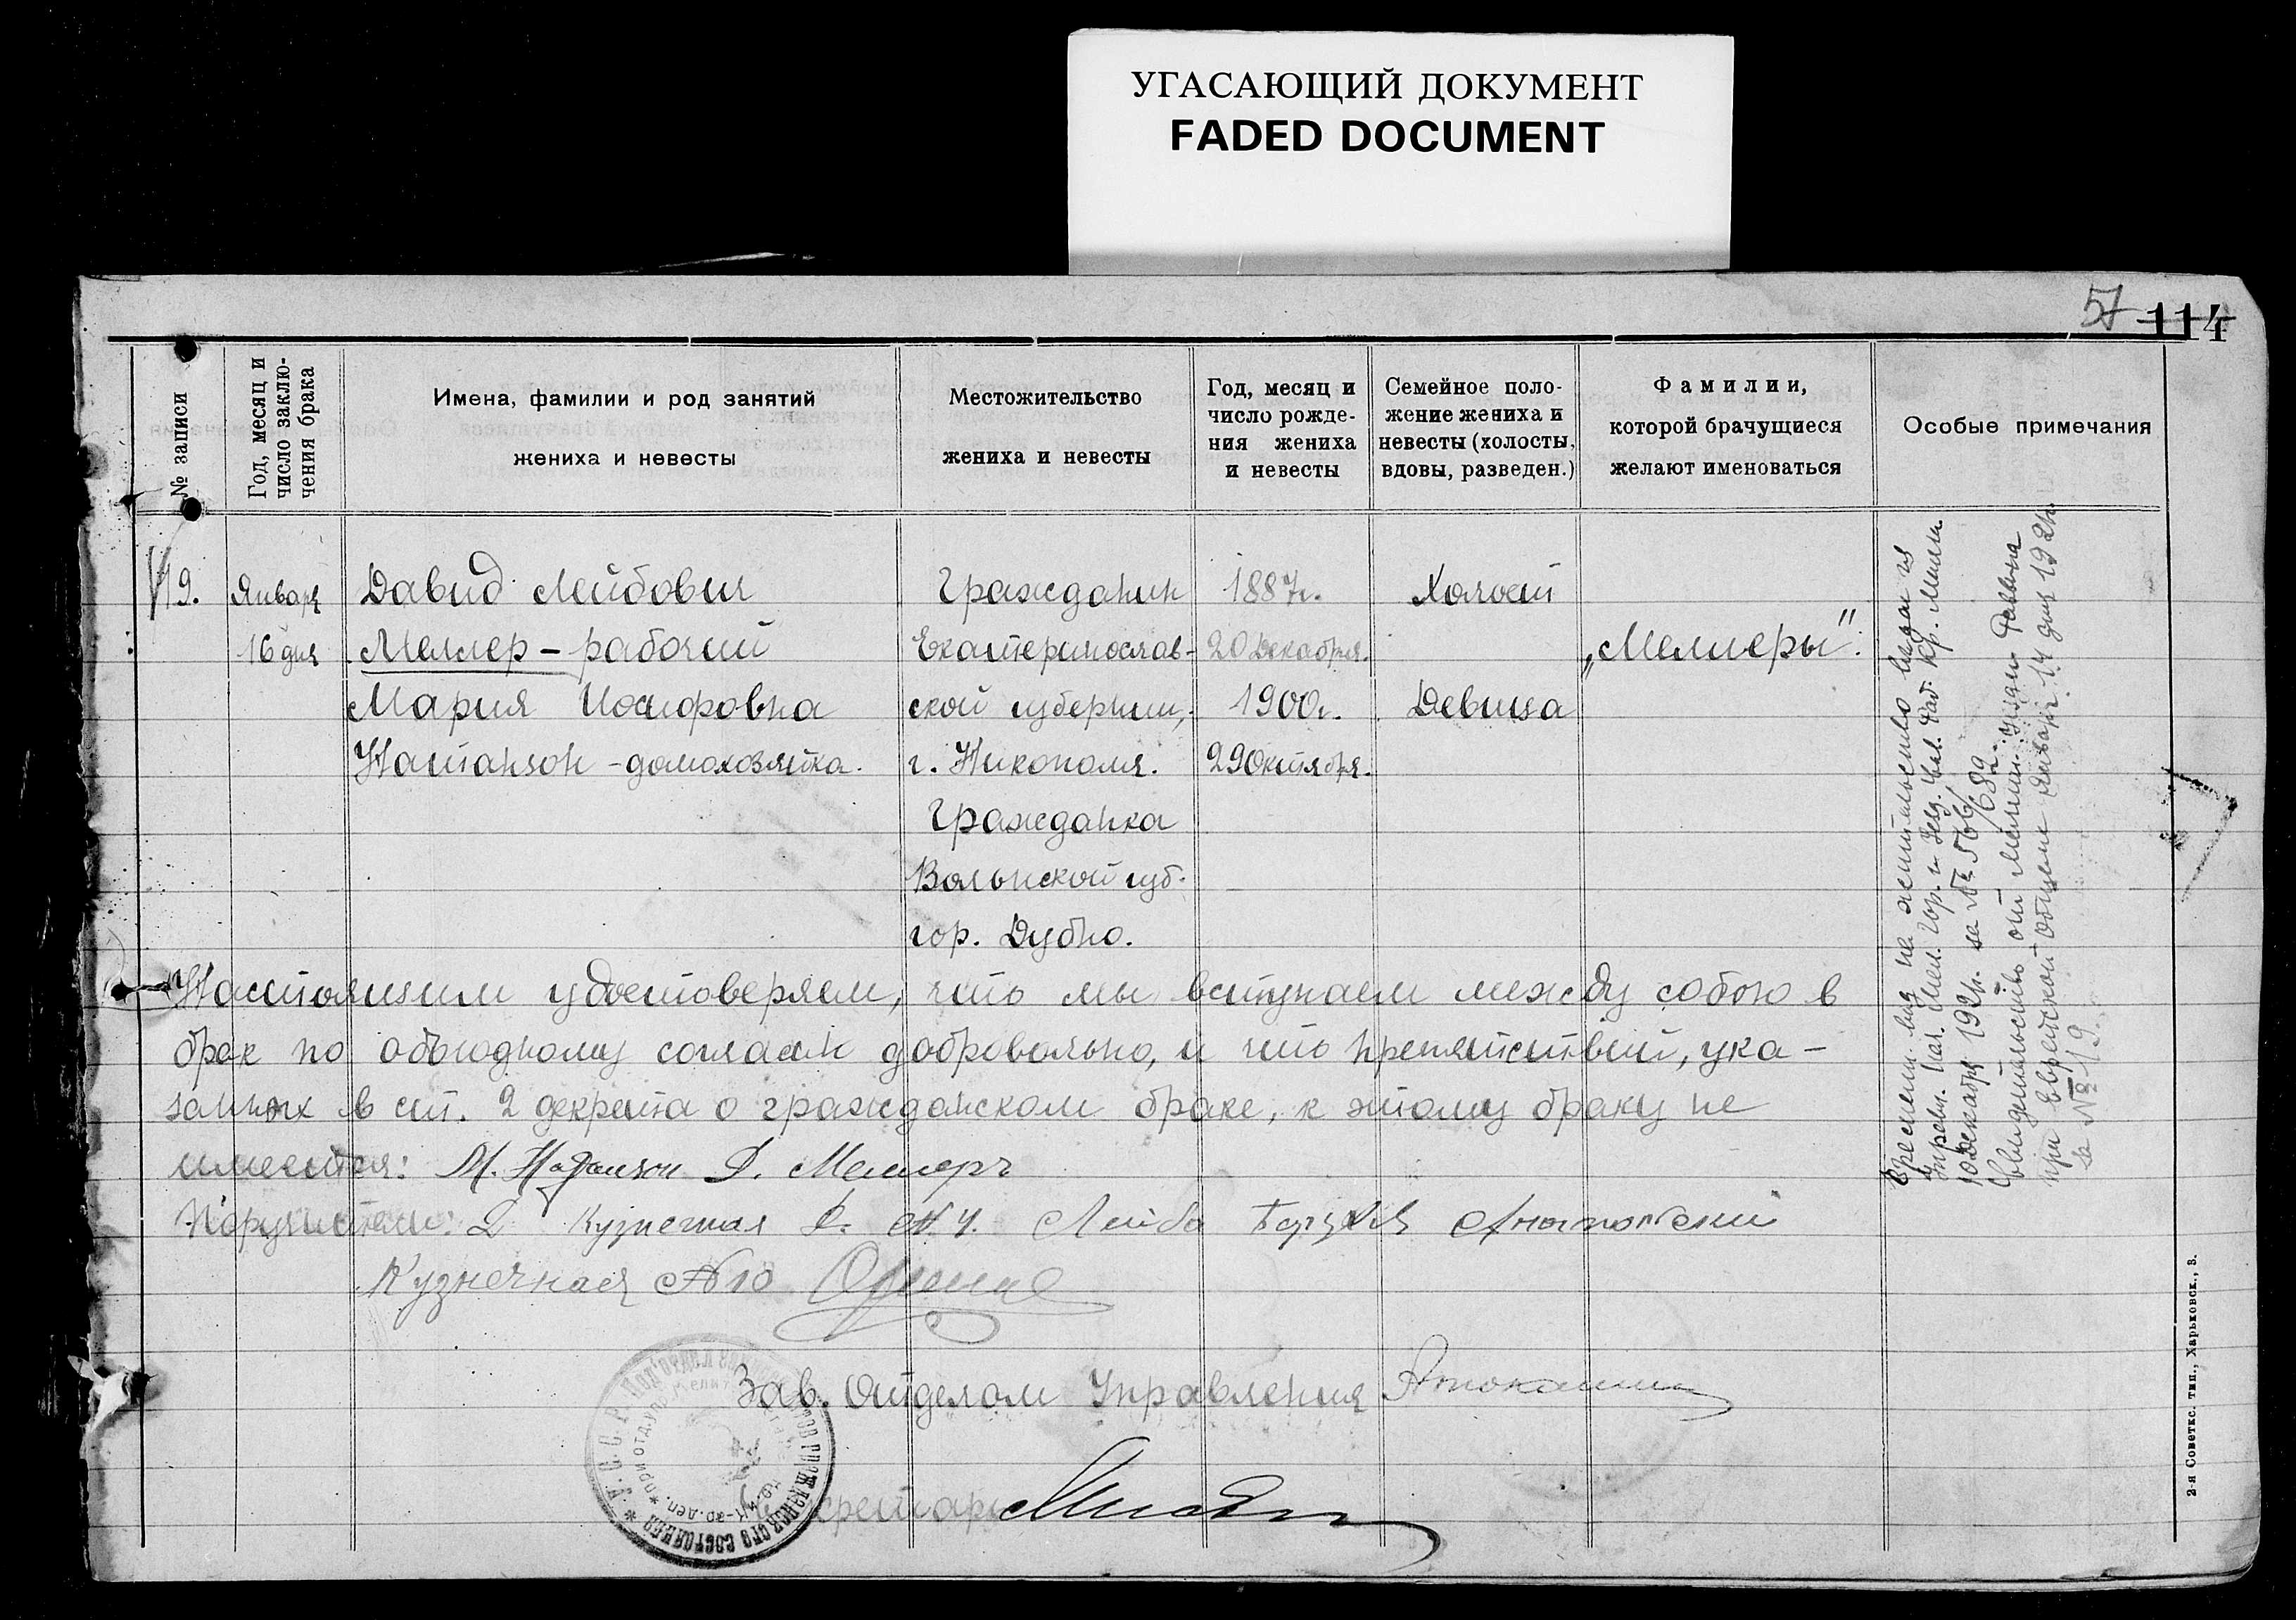 УГАСАЮЩИЙ ДОКУМЕНТ
FADED DOCUMENT
57 114
№ записи
Год, месяц и
число заклю-
чения брака
Имена, фамилии и род занятий
жениха и невесты
Местожительство
жениха и невесты
Год, месяц и
число рожде-
ния жениха
и невесты
Семейное поло-
жение жениха и
невесты (холосты,
вдовы, разведен.)
Фамилии,
которой брачущиеся
желают именоваться
Особые примечания
19.
Января
16 дня
Давид Лейбович
Меллер – рабочий
Мария Иосифовна
Натанзон - домохозяйка.
Гражданин
Екатеринослав-
ской губернии,
г. Никополя.
Гражданка
Волынской губ.
гор. Дубно.
1887г.
20 Декабря.
1900г.
29 Октября.
Холост
Девица
„Меллеры".
Времен. вид на жительство выдан из
Управл. Нач. Мел. Гор. и Уезд. Раб. Кр. Мил.
10 Декабря 192 г. за № 566/682.
Свидетельство от Мелит. Раввина
при Еврейской Общине Января 14 дня 192 г.
за № 19.
Настоящим удостоверяем, что мы вступаем между собою в
брак по обоюдному согласию добровольно, и что препятствий, ука-
занных в ст. 2 декрета о гражданском браке, к этому браку не
имеется: М. Натанзон Д. Меллеръ
Поручители: Кузнечная Лейба
Кузнечная №10
Зав. Отделом Управления
Секретарь
У.С.С.Р. Подотдел Гражданского состояния
при отд. упр.
2-я Советск. тип., Харьковск., 3.